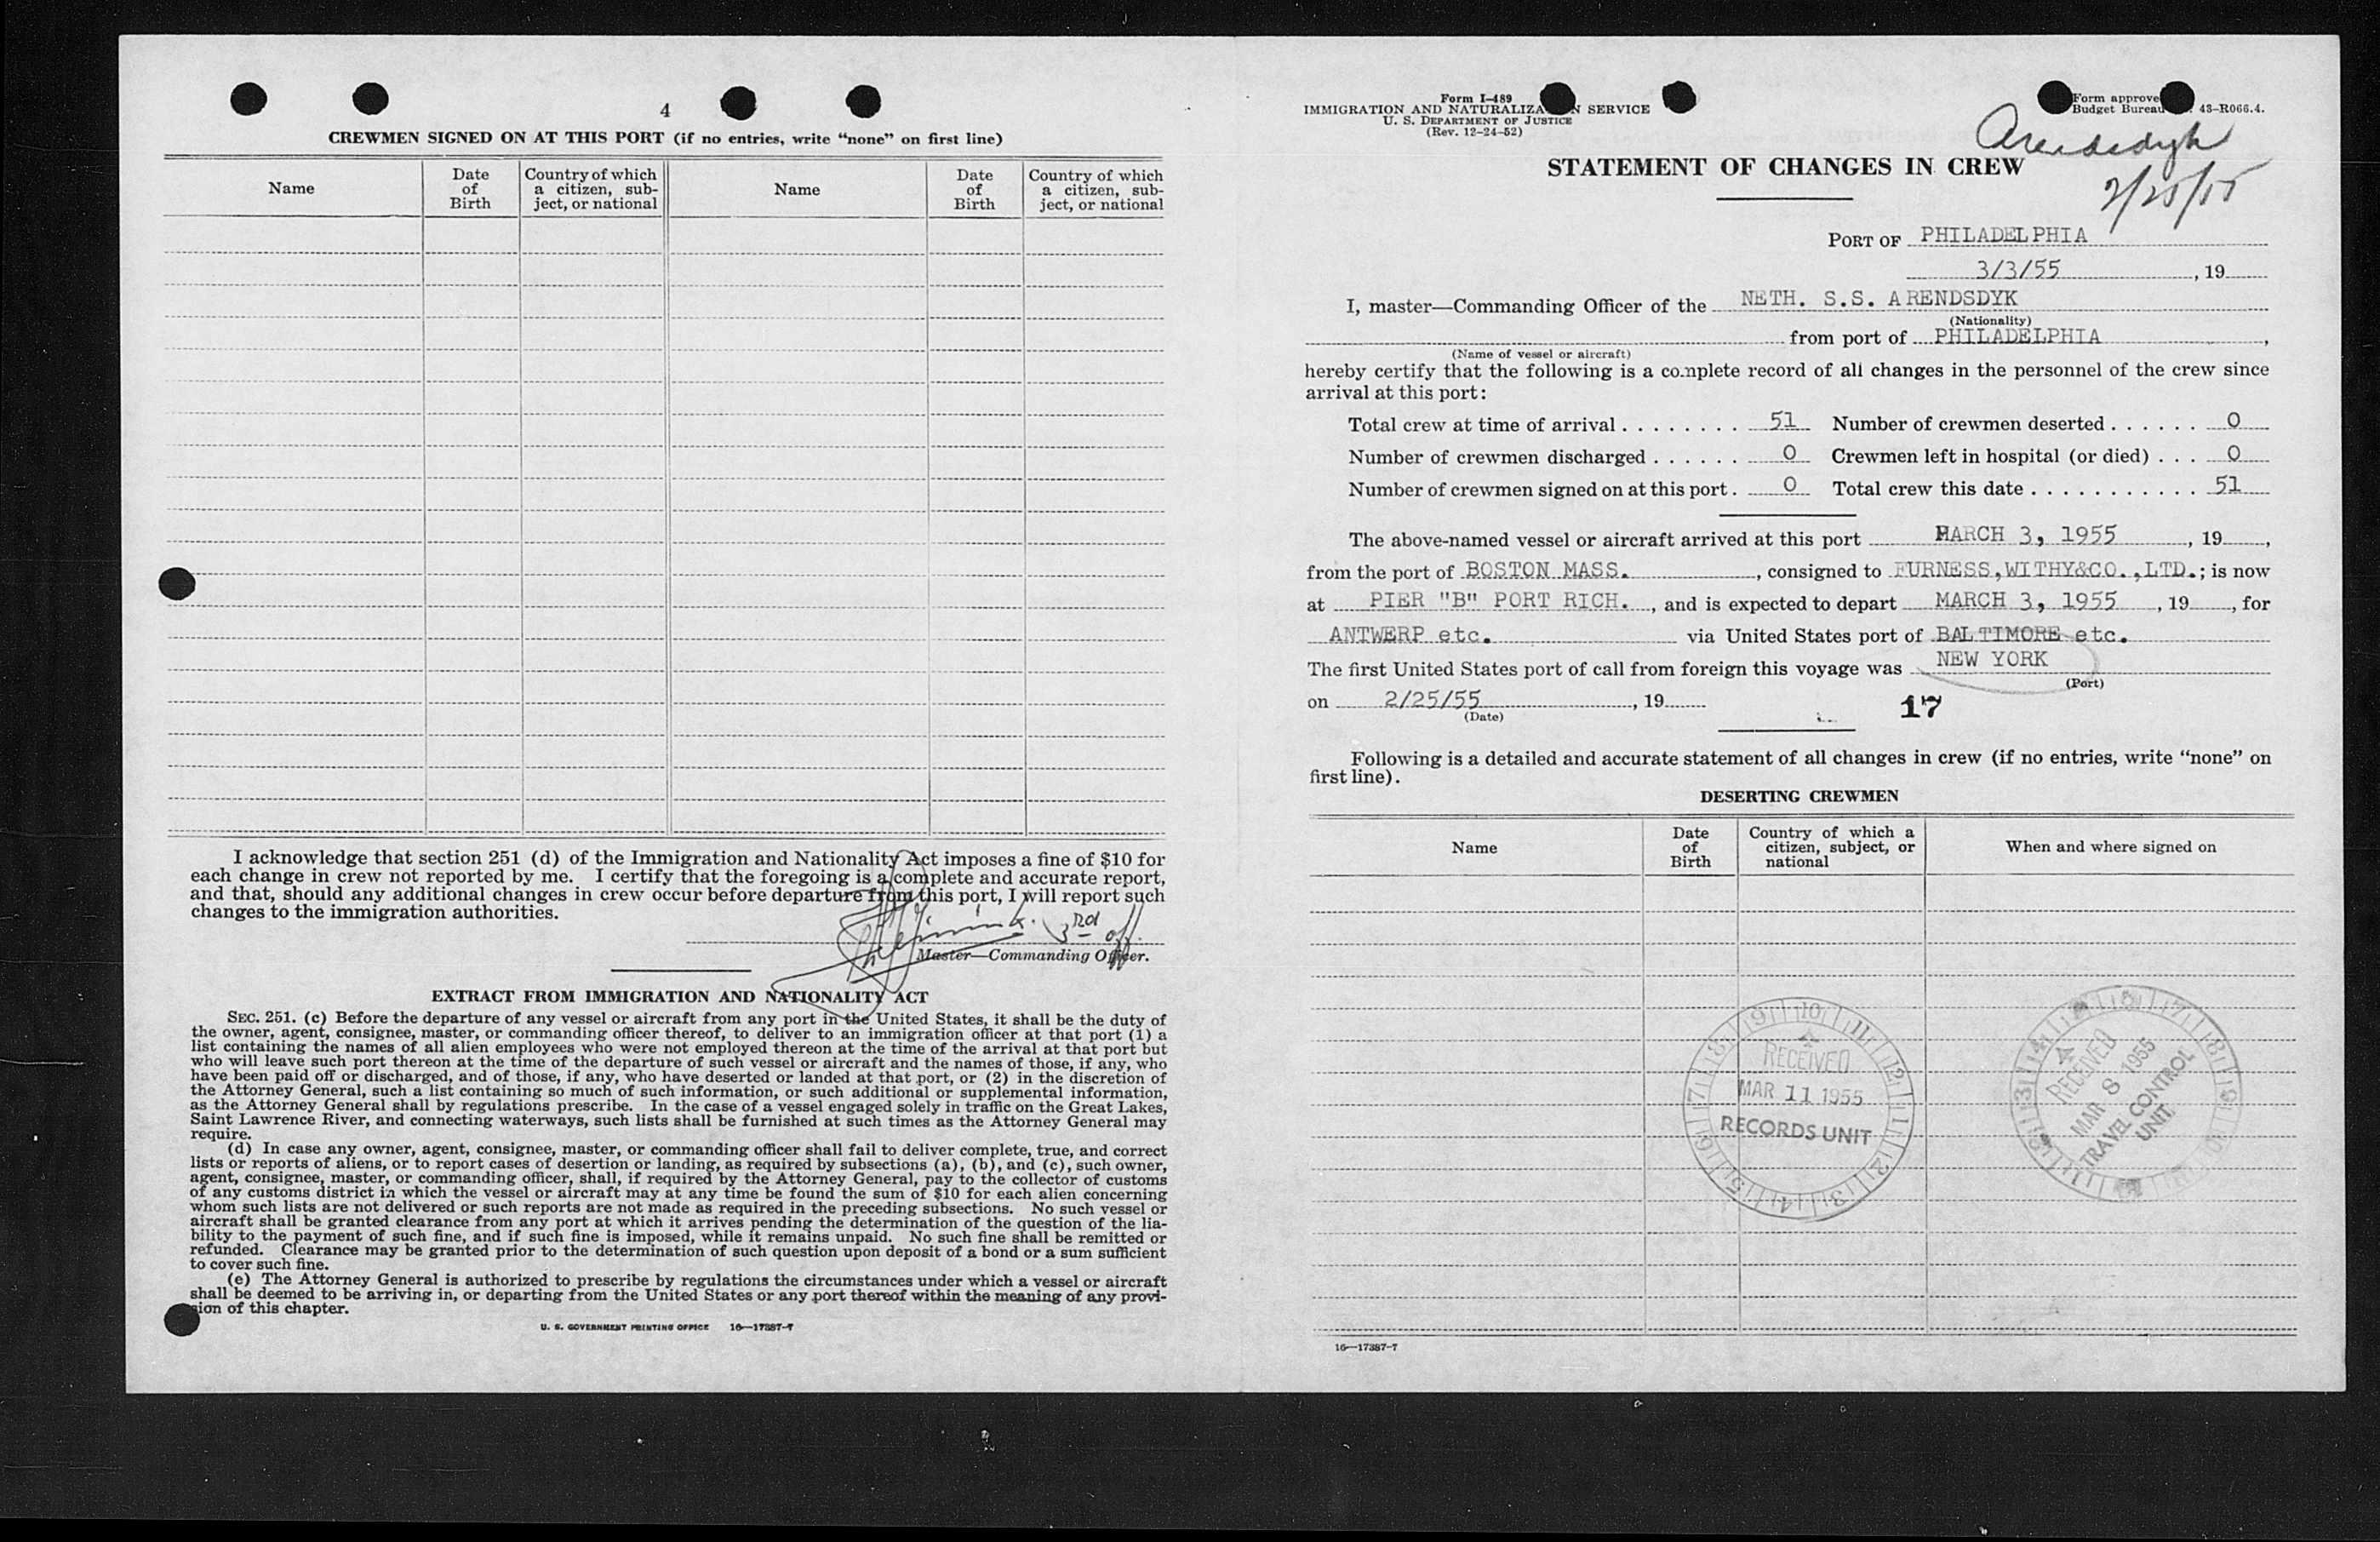 4
CREWMEN SIGNED ON AT THIS PORT (if no entries, write "none" on first line)
Name
Date of Birth
Country of which a citizen, sub-ject, or national
Name
Date of Birth
Country of which a citizen, sub-ject, or national
I acknowledge that section 251 (d) of the Immigration and Nationality Act imposes a fine of $10 for
each change in crew not reported by me. I certify that the foregoing is a complete and accurate report,
and that, should any additional changes in crew occur before departure from this port, I will report such
changes to the immigration authorities.
3rd off.
Master—Commanding Officer.
EXTRACT FROM IMMIGRATION AND NATIONALITY ACT
SEC. 251. (c) Before the departure of any vessel or aircraft from any port in the United States, it shall be the duty of
the owner, agent, consignee, master, or commanding officer thereof, to deliver to an immigration officer at that port (1) a
list containing the names of all alien employees who were not employed thereon at the time of the arrival at that port but
who will leave such port thereon at the time of the departure of such vessel or aircraft and the names of those, if any, who
have been paid off or discharged, and of those, if any, who have deserted or landed at that port, or (2) in the discretion of
the Attorney General, such a list containing so much of such information, or such additional or supplemental information,
as the Attorney General shall by regulations prescribe. In the case of a vessel engaged solely in traffic on the Great Lakes,
Saint Lawrence River, and connecting waterways, such lists shall be furnished at such times as the Attorney General may
require.
(d) In case any owner, agent, consignee, master, or commanding officer shall fail to deliver complete, true, and correct
lists or reports of aliens, or to report cases of desertion or landing, as required by subsections (a), (b), and (c), such owner,
agent, consignee, master, or commanding officer, shall, if required by the Attorney General, pay to the collector of customs
of any customs district in which the vessel or aircraft may at any time be found the sum of $10 for each alien concerning
whom such lists are not delivered or such reports are not made as required in the preceding subsections. No such vessel or
aircraft shall be granted clearance from any port at which it arrives pending the determination of the question of the lia-
bility to the payment of such fine, and if such fine is imposed, while it remains unpaid. No such fine shall be remitted or
refunded. Clearance may be granted prior to the determination of such question upon deposit of a bond or a sum sufficient
to cover such fine.
(e) The Attorney General is authorized to prescribe by regulations the circumstances under which a vessel or aircraft
shall be deemed to be arriving in, or departing from the United States or any port thereof within the meaning of any provi-
sion of this chapter.
U. S. GOVERNMENT PRINTING OFFICE 16—17387-7
Form I-489
IMMIGRATION AND NATURALIZATION SERVICE
U. S. DEPARTMENT OF JUSTICE
(Rev. 12-24-52)
Form approved
Budget Bureau 43-R066.4.
Arendsdyk
2/25/55
STATEMENT OF CHANGES IN CREW
PORT OF PHILADELPHIA
3/3/55, 19
I, master—Commanding Officer of the NETH. S.S. ARENDSDYK
(Nationality)
from port of PHILADELPHIA,
(Name of vessel or aircraft)
hereby certify that the following is a complete record of all changes in the personnel of the crew since
arrival at this port:
Total crew at time of arrival . . . . . . . . 51 Number of crewmen deserted . . . . . . 0
Number of crewmen discharged . . . . . . 0 Crewmen left in hospital (or died) . . . 0
Number of crewmen signed on at this port . 0 Total crew this date . . . . . . . . . . . 51
The above-named vessel or aircraft arrived at this port MARCH 3, 1955, 19,
from the port of BOSTON MASS., consigned to FURNESS,WITHY&CO.,LTD.; is now
at PIER "B" PORT RICH., and is expected to depart MARCH 3, 1955, 19, for
ANTWERP etc. via United States port of BALTIMORE etc.
The first United States port of call from foreign this voyage was NEW YORK
(Port)
on 2/25/55, 19
(Date)
17
Following is a detailed and accurate statement of all changes in crew (if no entries, write "none" on
first line).
DESERTING CREWMEN
Name
Date of Birth
Country of which a citizen, subject, or national
When and where signed on
RECEIVED
MAR 11 1955
RECORDS UNIT
RECEIVED
MAR 8 1955
TRAVEL CONTROL
UNIT
16—17387-7